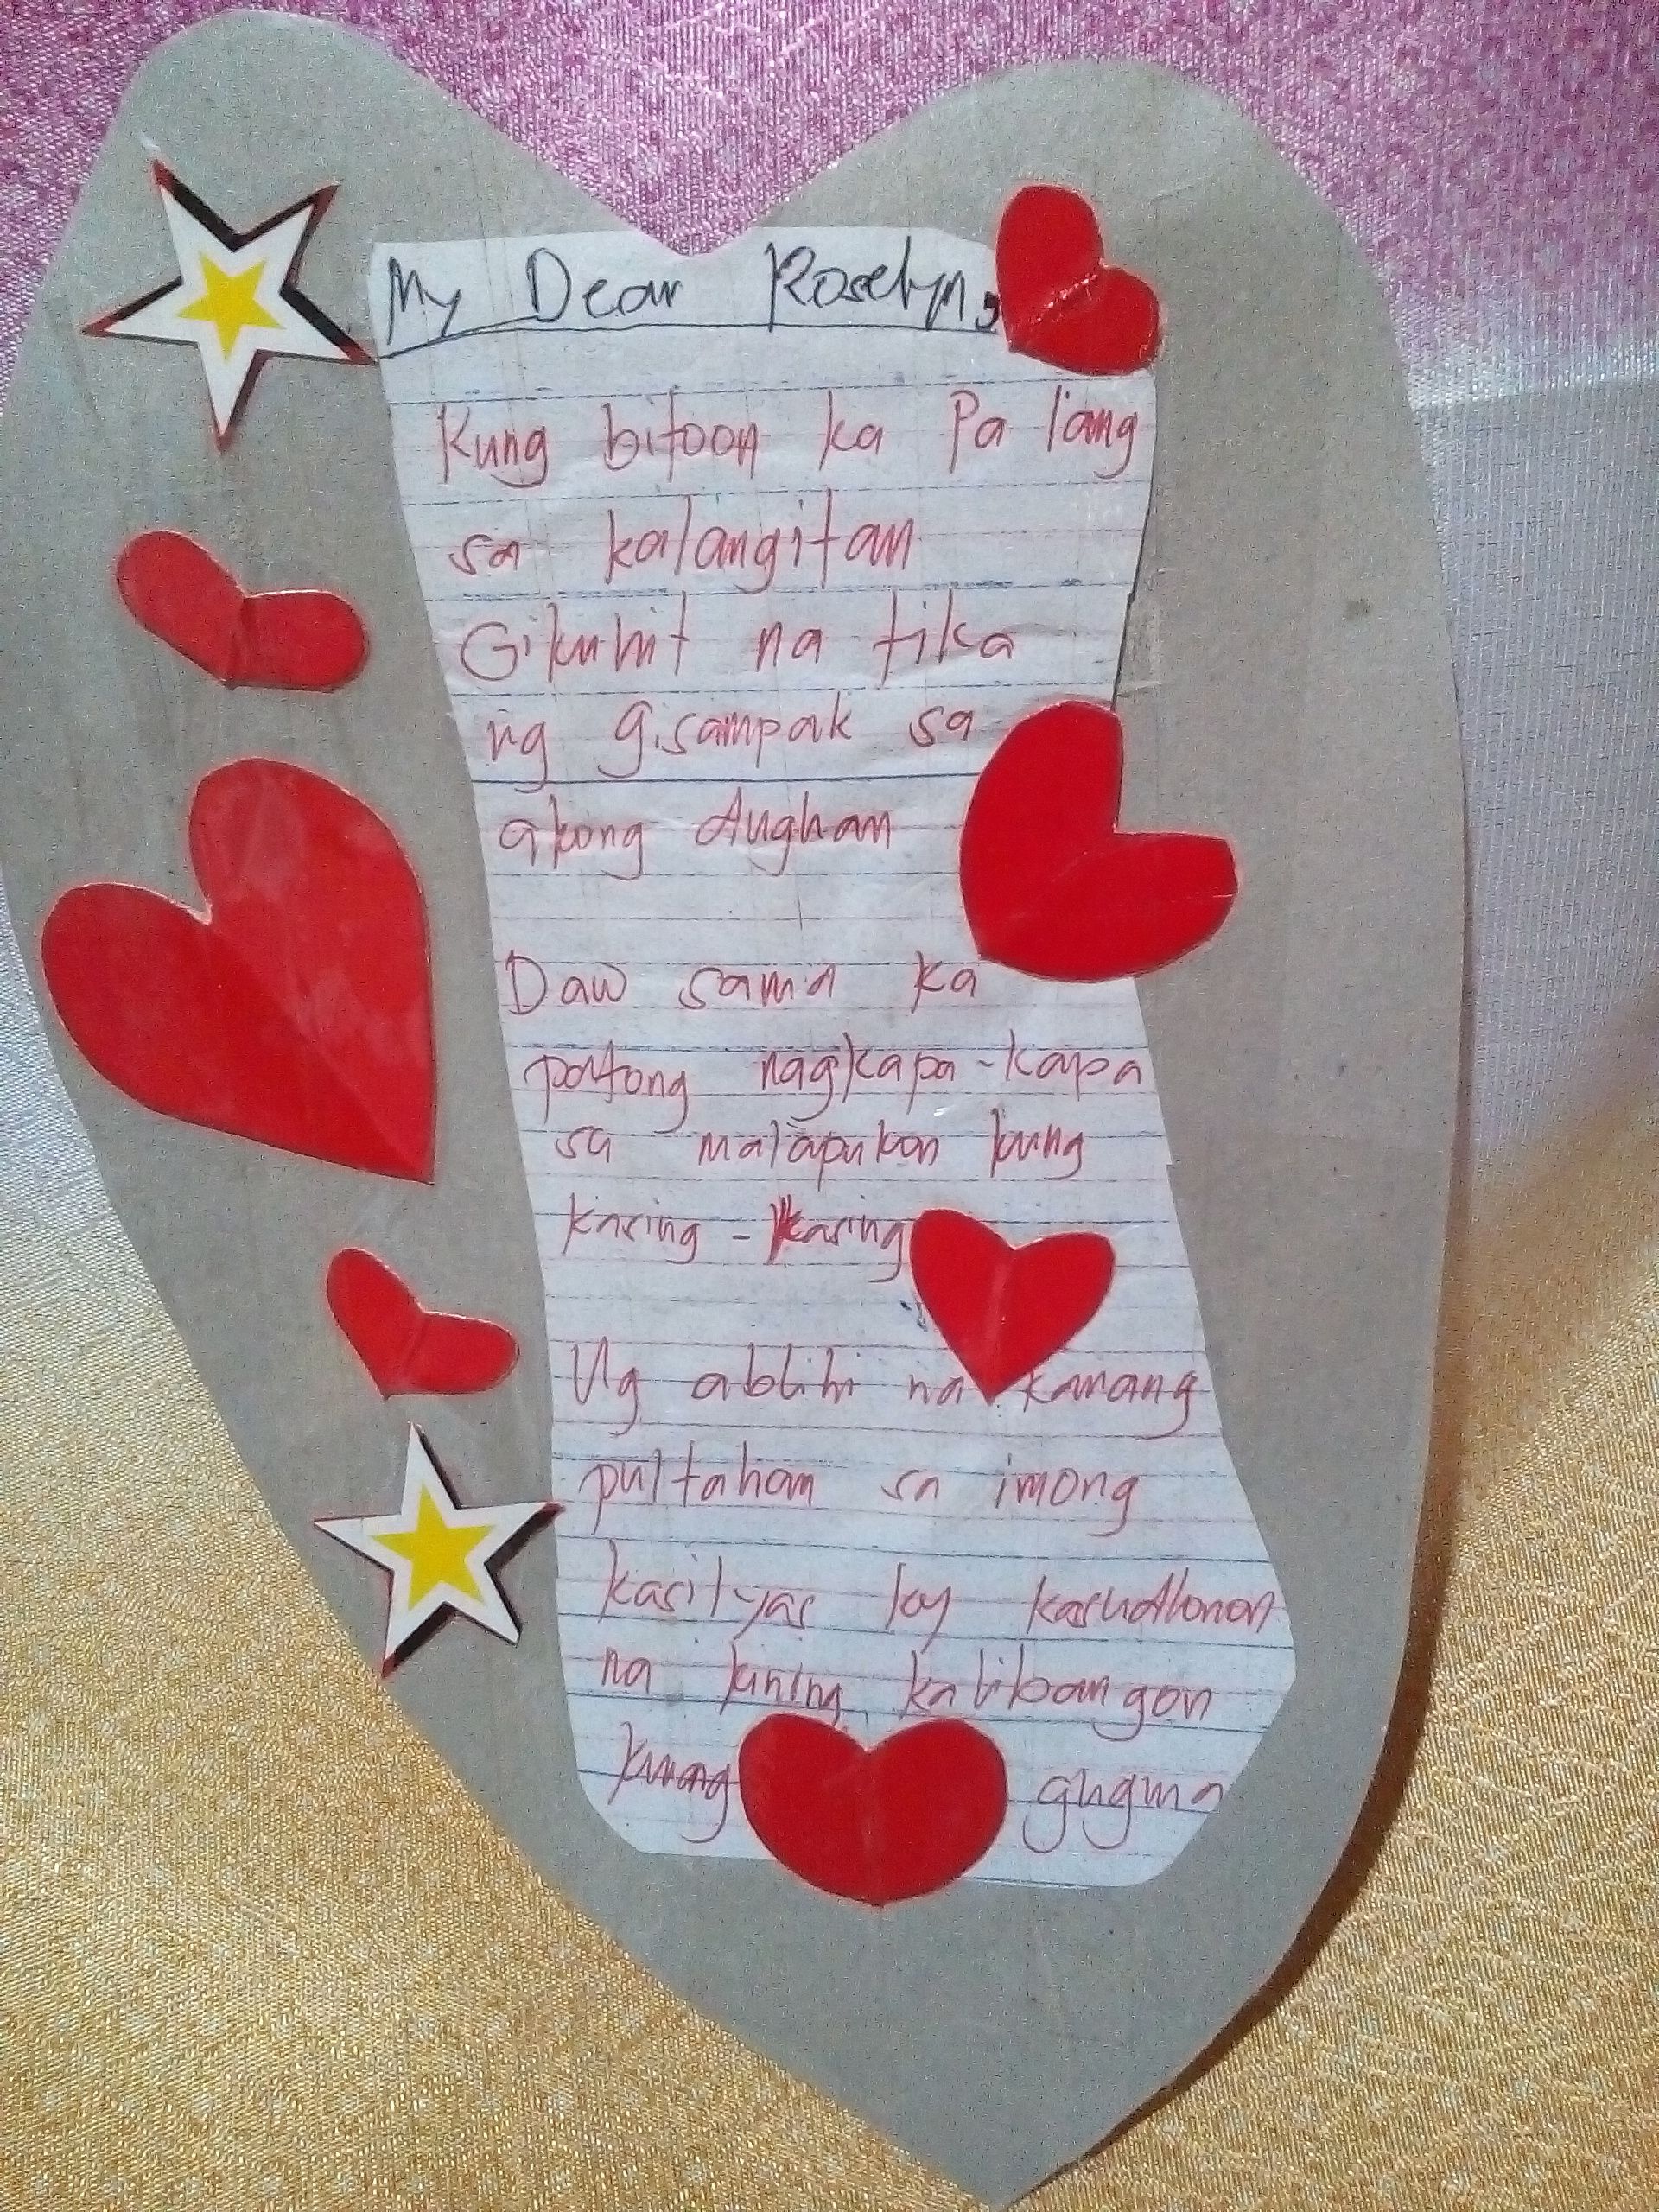 My Dear Roselyn,
Kung bitoon ka Pa lang
sa kalangitan
Gikuhit na tika
ng gisampak sa
akong dughan
Daw sama ka
patong nagkapa-kapa
sa malapukon kung
kasing-kasing
Ug ablihi na kanang
pultahan sa imong
kasilyas ky kasudlonon
na kining kalibangon
kung gugma